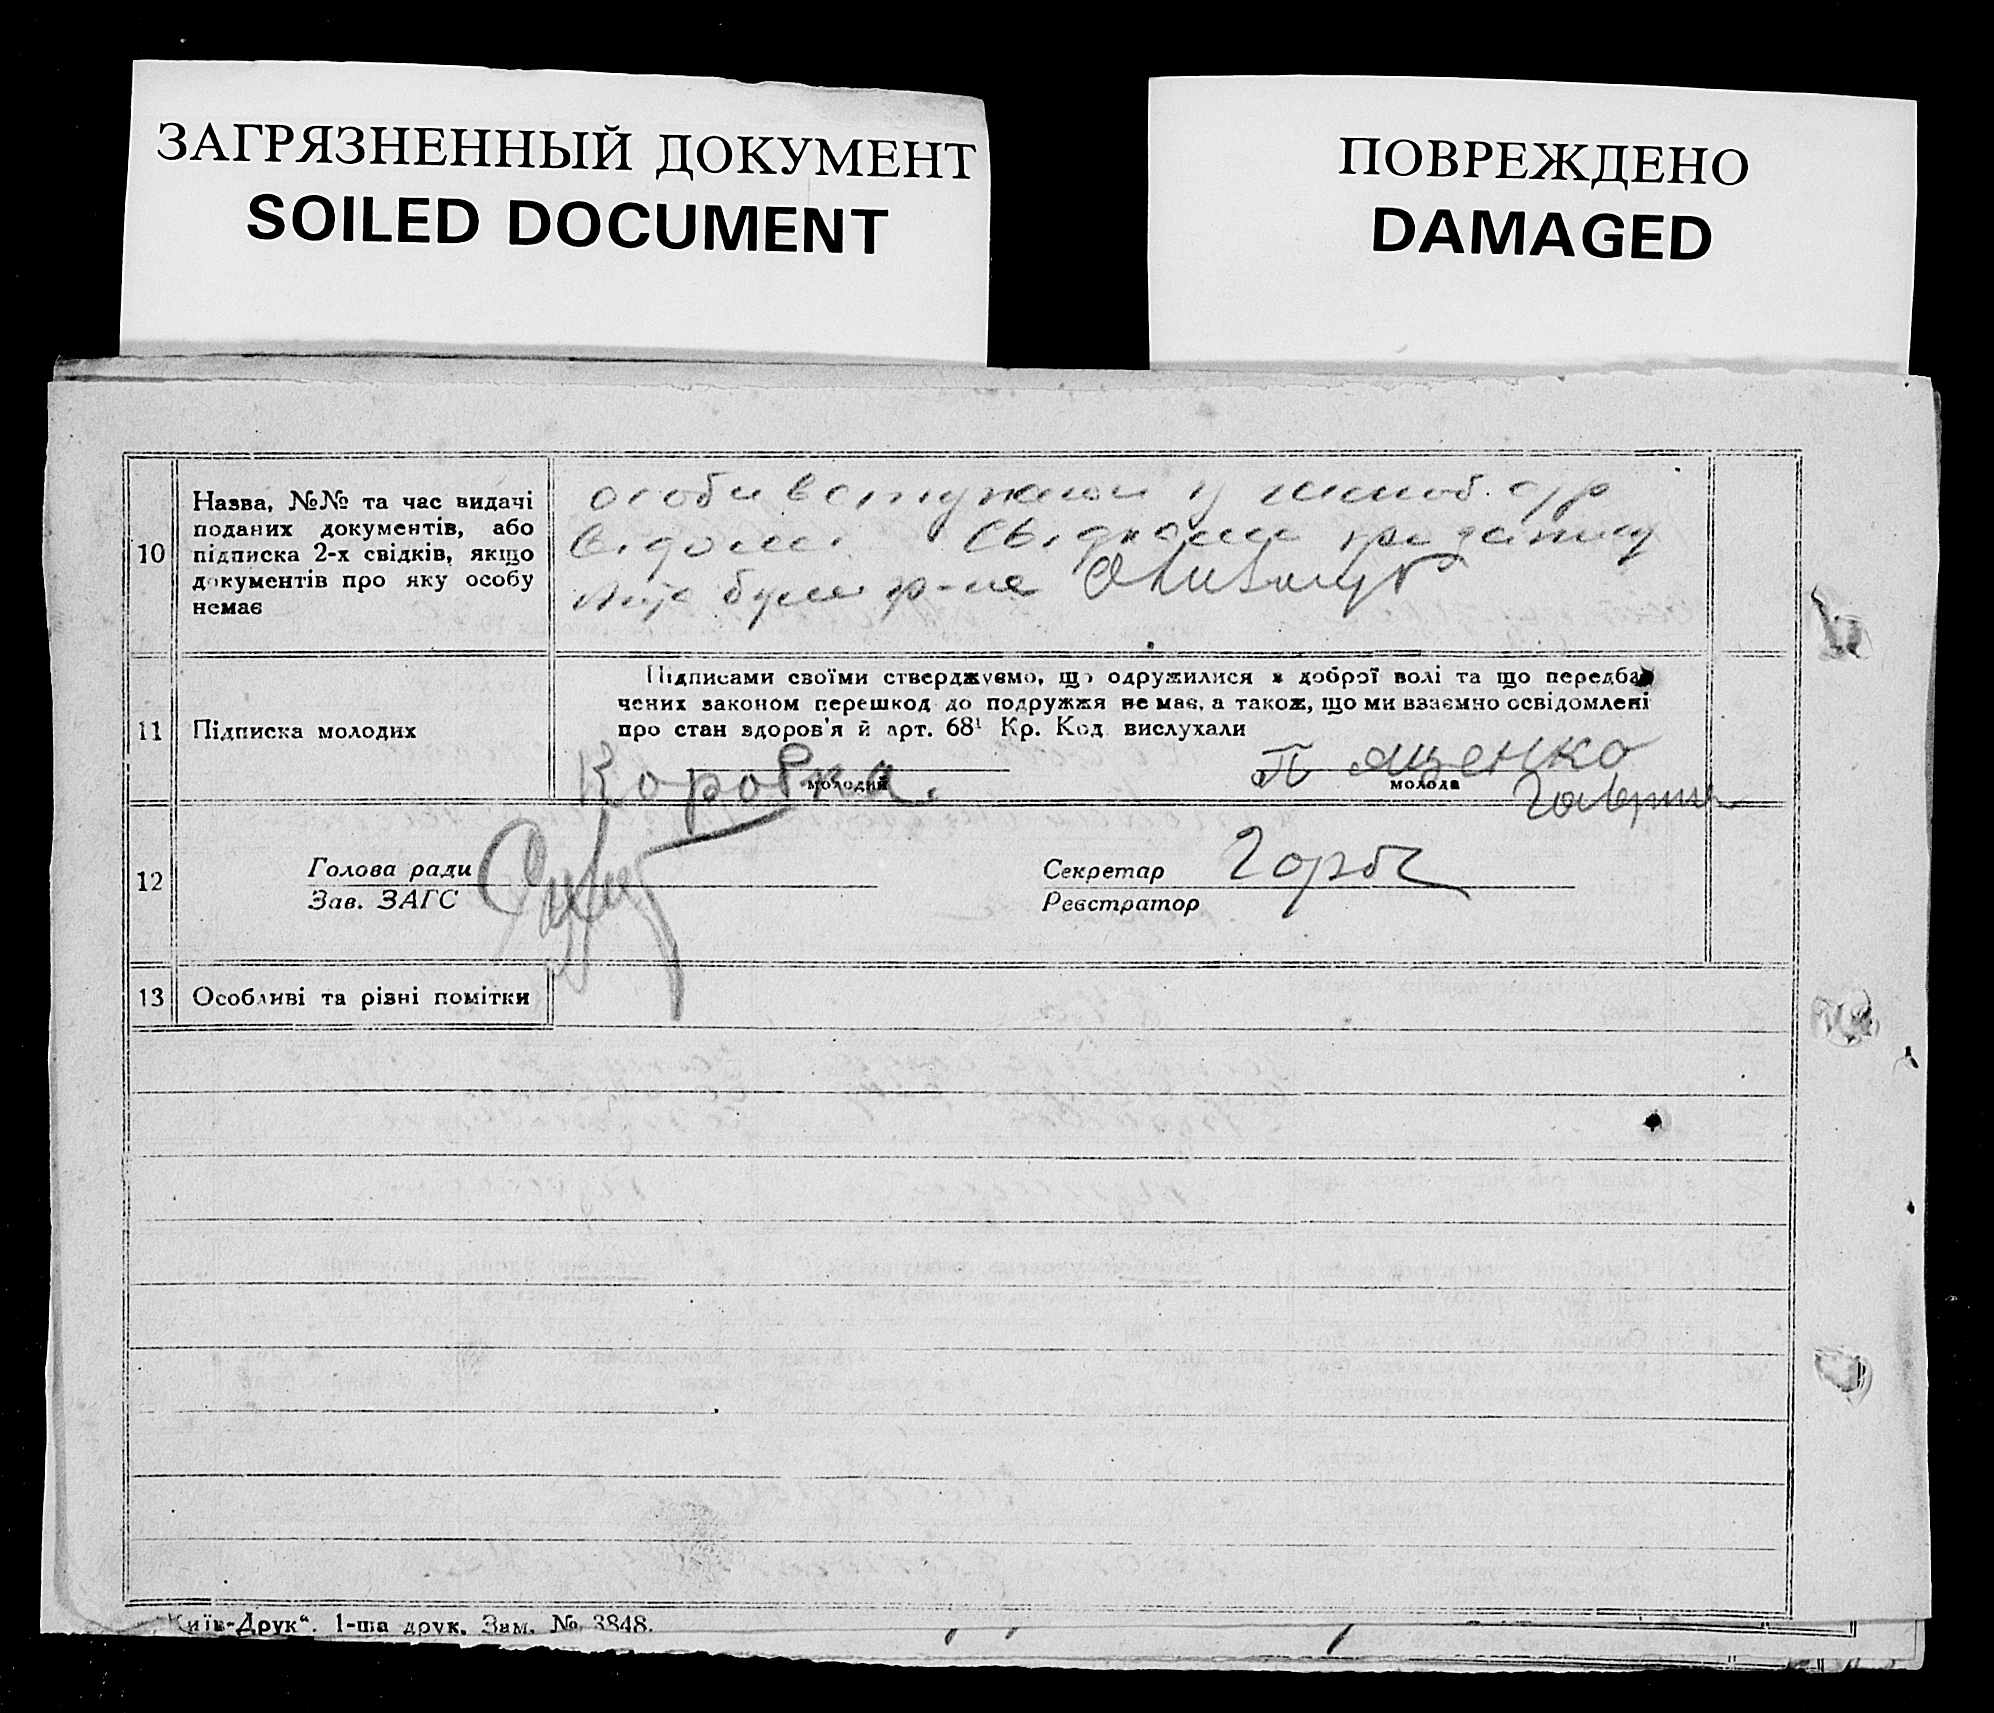 ЗАГРЯЗНЕННЫЙ ДОКУМЕНТ
SOILED DOCUMENT
ПОВРЕЖДЕНО
DAMAGED
10
Назва, №№ та час видачі
поданих документів, або
підписка 2-х свідків, якщо
документів про яку особу
немає
особи вступають у
відомі. Свідками при запису
були
11
Підписка молодих
Підписами своїми стверджуємо, що одружилися з доброї волі та що передба-
чених законом перешкод до подружжя не має, а також, що ми взаємно освідомлені
про стан здоров'я й арт. 68¹ Кр. Код вислухали
Коровка.
молодий
Ященко
молода
12
Голова ради
Зав. ЗАГС
Секретар
Горбс
Реєстратор
13
Особливі та різні помітки
„Київ-Друк“. 1-ша друк. Зам. № 3848.